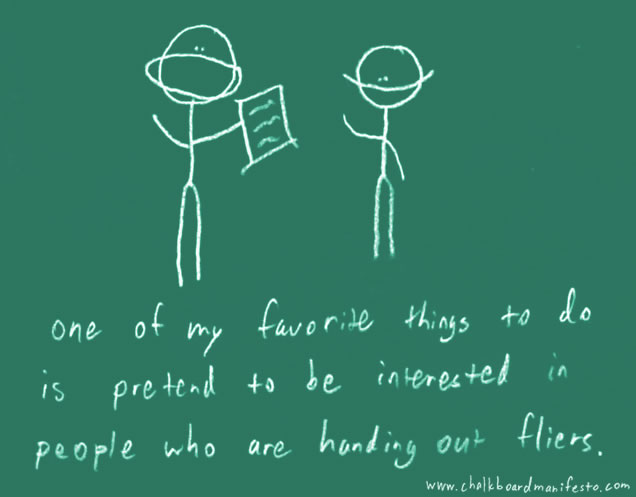 one of my favorite things to do
is pretend to be interested in
people who are handing out fliers.
www.chalkboardmanifesto.com